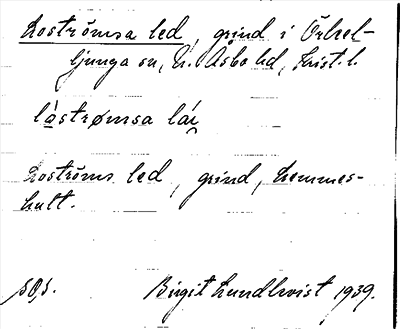 Loströmsa led, grind i Örkel-
ljunga sn, N. Åsbo hd, Krist. l.
låstrømsa lá
Loströms led, grind, Lemmes-
hult.
Birgit Lundkvist 1939.